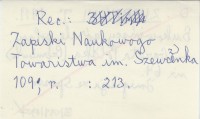 Rec.:
Zapiski Naukowogo
Towaristwa im. Szewczenka
109; r. : 213.